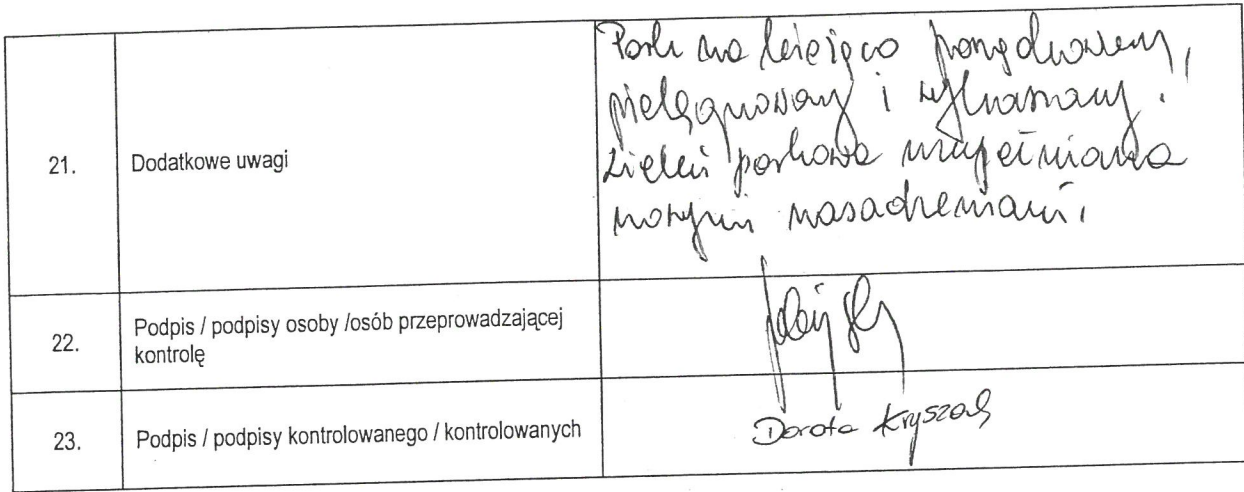 21.
Dodatkowe uwagi
Park na bieżąco porządkowany,
pielęgnowany i wykaszany.
Zieleń parkowa uzupełniana
nowymi nasadzeniami.
22.
Podpis / podpisy osoby /osób przeprowadzającej
kontrolę
23.
Podpis / podpisy kontrolowanego / kontrolowanych
Dorota